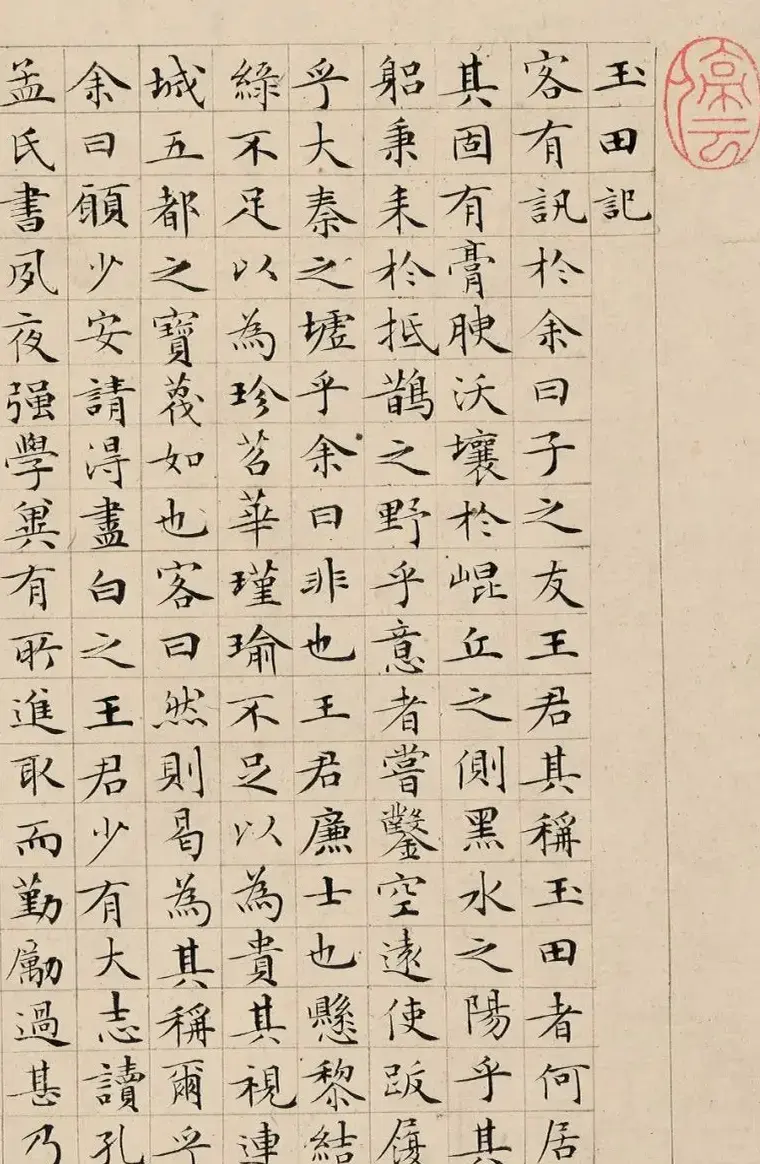 停云
玉田記
客有訊於余曰子之友王君其稱玉田者何居
其固有膏腴沃壤於崐丘之側黑水之陽乎其
躳秉耒於抵鵲之野乎意者嘗鑿空遠使跋履
乎大秦之墟乎余曰非也王君廉士也懸黎結
綠不足以為珍苕華瑾瑜不足以為貴其視連
城五都之寶蔑如也客曰然則曷為其稱爾乎
余曰願少安請得盡白之王君少有大志讀孔
孟氏書夙夜强學兾有所進取而勤勵過甚乃